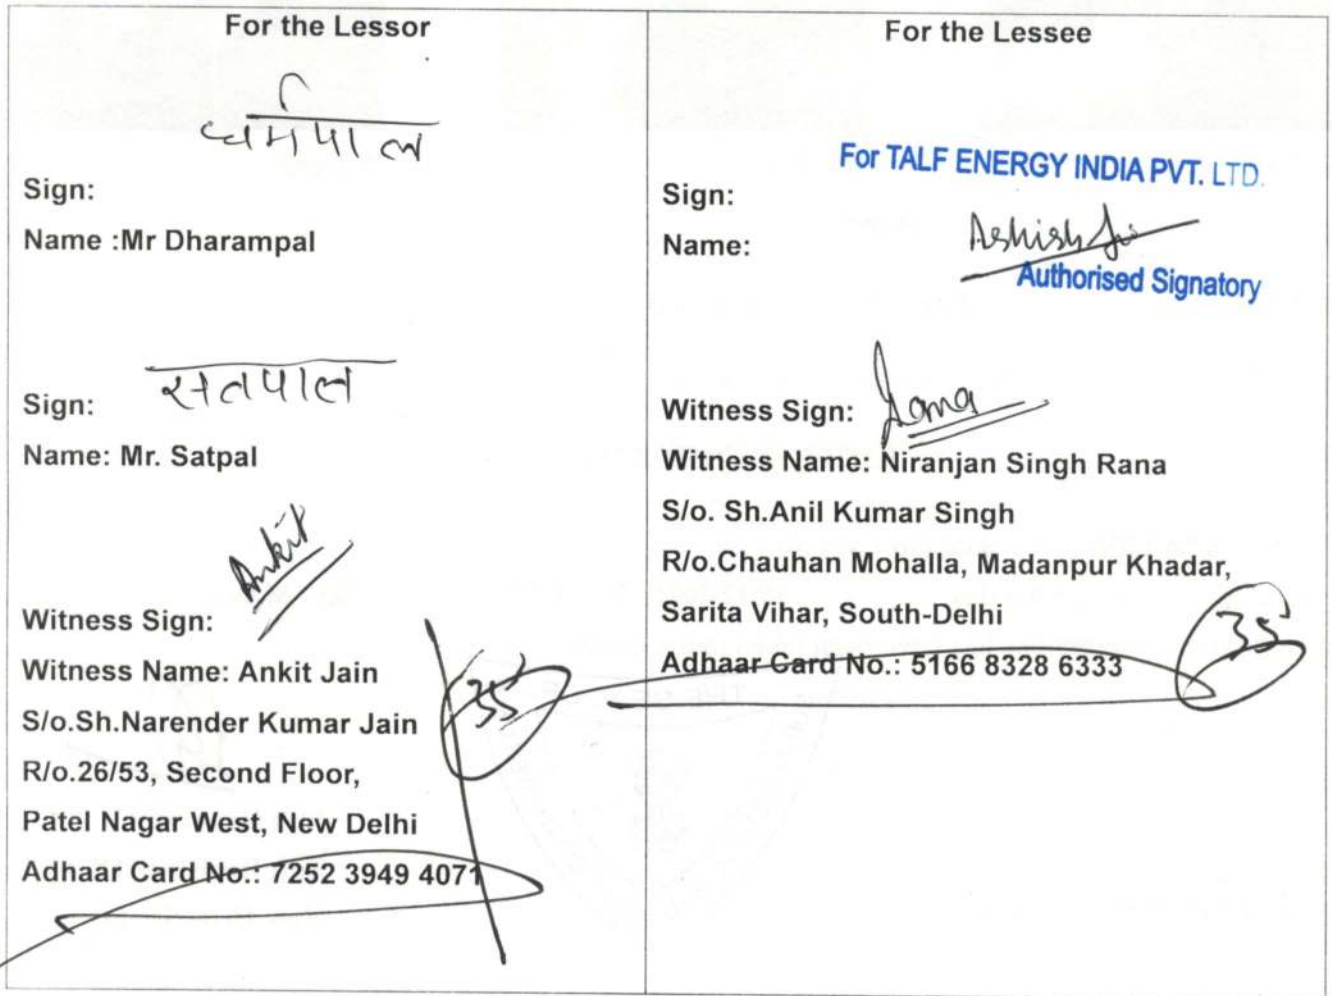 For the Lessor
धर्मपाल
Sign:
Name :Mr Dharampal
सतपाल
Sign:
Name: Mr. Satpal
Ankit
Witness Sign:
Witness Name: Ankit Jain
S/o.Sh.Narender Kumar Jain
R/o.26/53, Second Floor,
Patel Nagar West, New Delhi
Adhaar Card No.: 7252 3949 4071
35
For the Lessee
For TALF ENERGY INDIA PVT. LTD.
Sign:
Name:
Ashish
Authorised Signatory
Witness Sign: Rana
Witness Name: Niranjan Singh Rana
S/o. Sh.Anil Kumar Singh
R/o.Chauhan Mohalla, Madanpur Khadar,
Sarita Vihar, South-Delhi
Adhaar Card No.: 5166 8328 6333
35